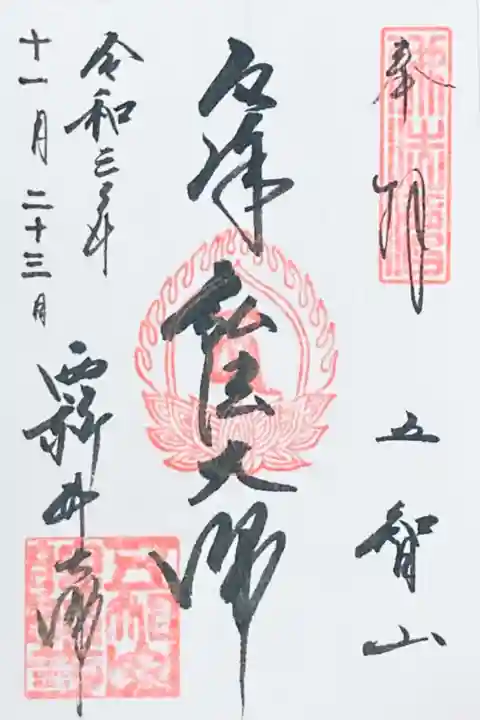 奉拝
五智山
厄除 弘法大師
令和三年
十一月二十三日
西新井大師